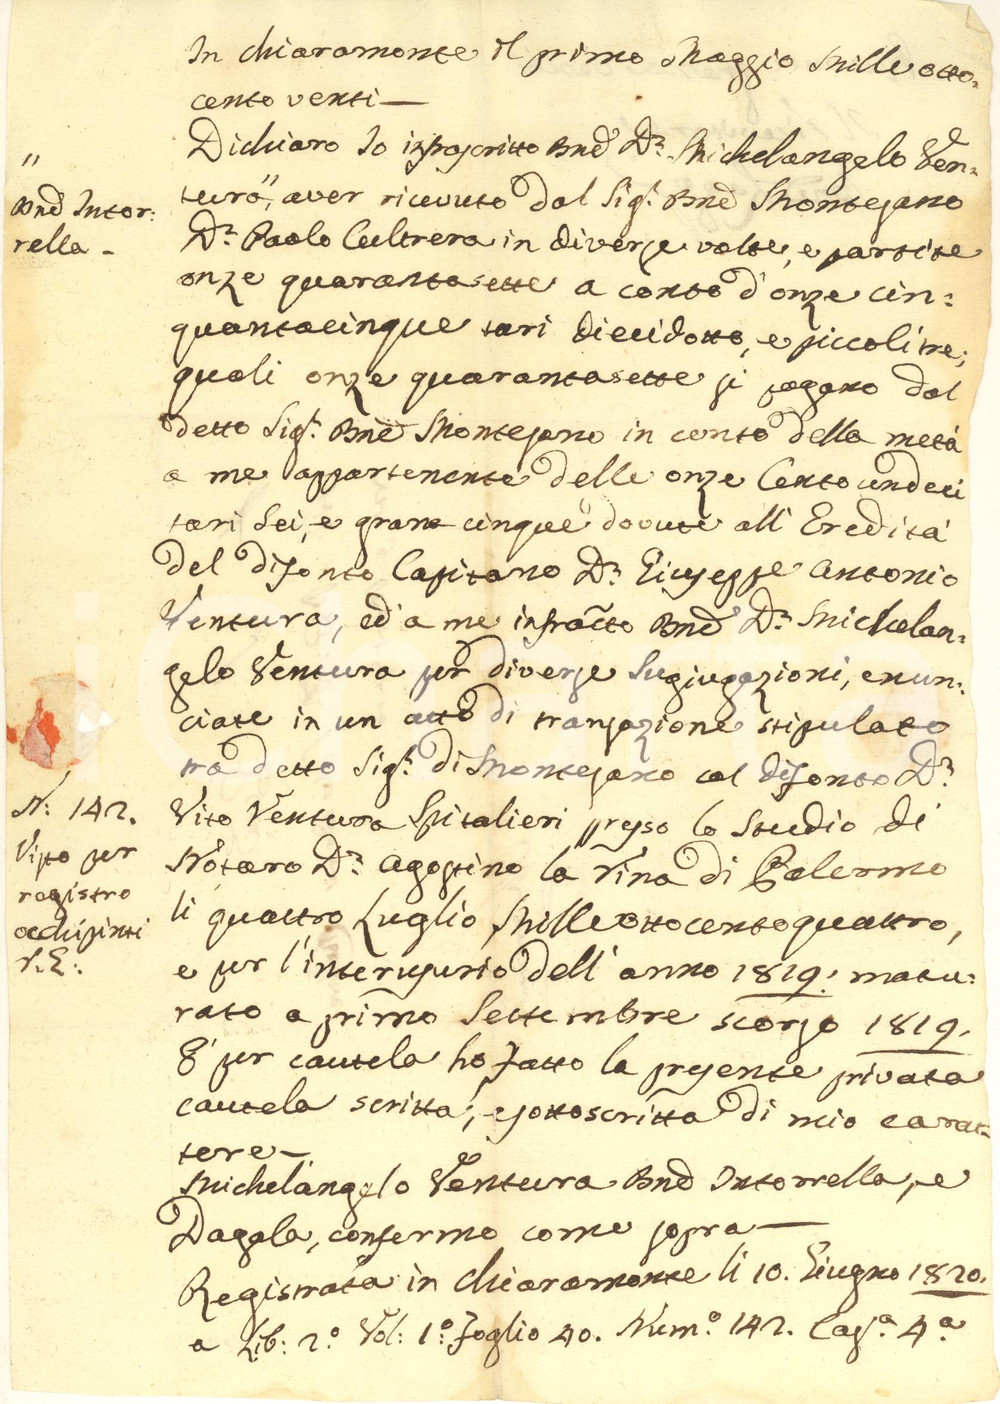 In Chiaramonte il primo Maggio Mille otto-
cento venti —
Dichiaro Io infrascritto Bne D.r Michelangelo Ven-
tura", aver ricevuto dal Sig.r Bne Montesano
D.r Paolo Cultrera in diverse volte, e partite
onze quarantasette a conto d'onze cin-
quantacinque tarì diecidotto, e piccoli tre;
quali onze quarantasette si pagano dal
detto Sig.r Bne Montesano in conto della metà
a me appartenente delle onze Cento undeci
tarì Sei, e grana cinque dovute all'Eredità
del difonto Capitano D.r Giuseppe Antonio
Ventura, ed a me infratto Bne D.r Michelan-
gelo Ventura per diverse Sugiugazioni, enun-
ciate in un atto di transazione stipulato
trà detto Sig.r di Montesano col difonto D.r
Vito Ventura Spitalieri presso lo Studio di
Notaro D.r Agostino la Vina di Palermo
li quattro Luglio Mille ottocentoquattro,
e per l'interusurio dell'anno 1819: matu-
rato a primo Settembre scorso 1819.
E per cautela ho fatto la presente privata
cautela scritta, e sottoscritta di mio carat-
tere —
Michelangelo Ventura Bne Intorrella, e
Dagala, confermo come sopra —
Registrata in Chiaramonte li 10. Giugno 1820.
a Lib: 2.o Vol: 1.o Foglio 40. Num.o 142. Cas.a 4.a
"
Bne Intor:
rella -
N. 142.
Visto per
registro
Occhipinti
R.E: